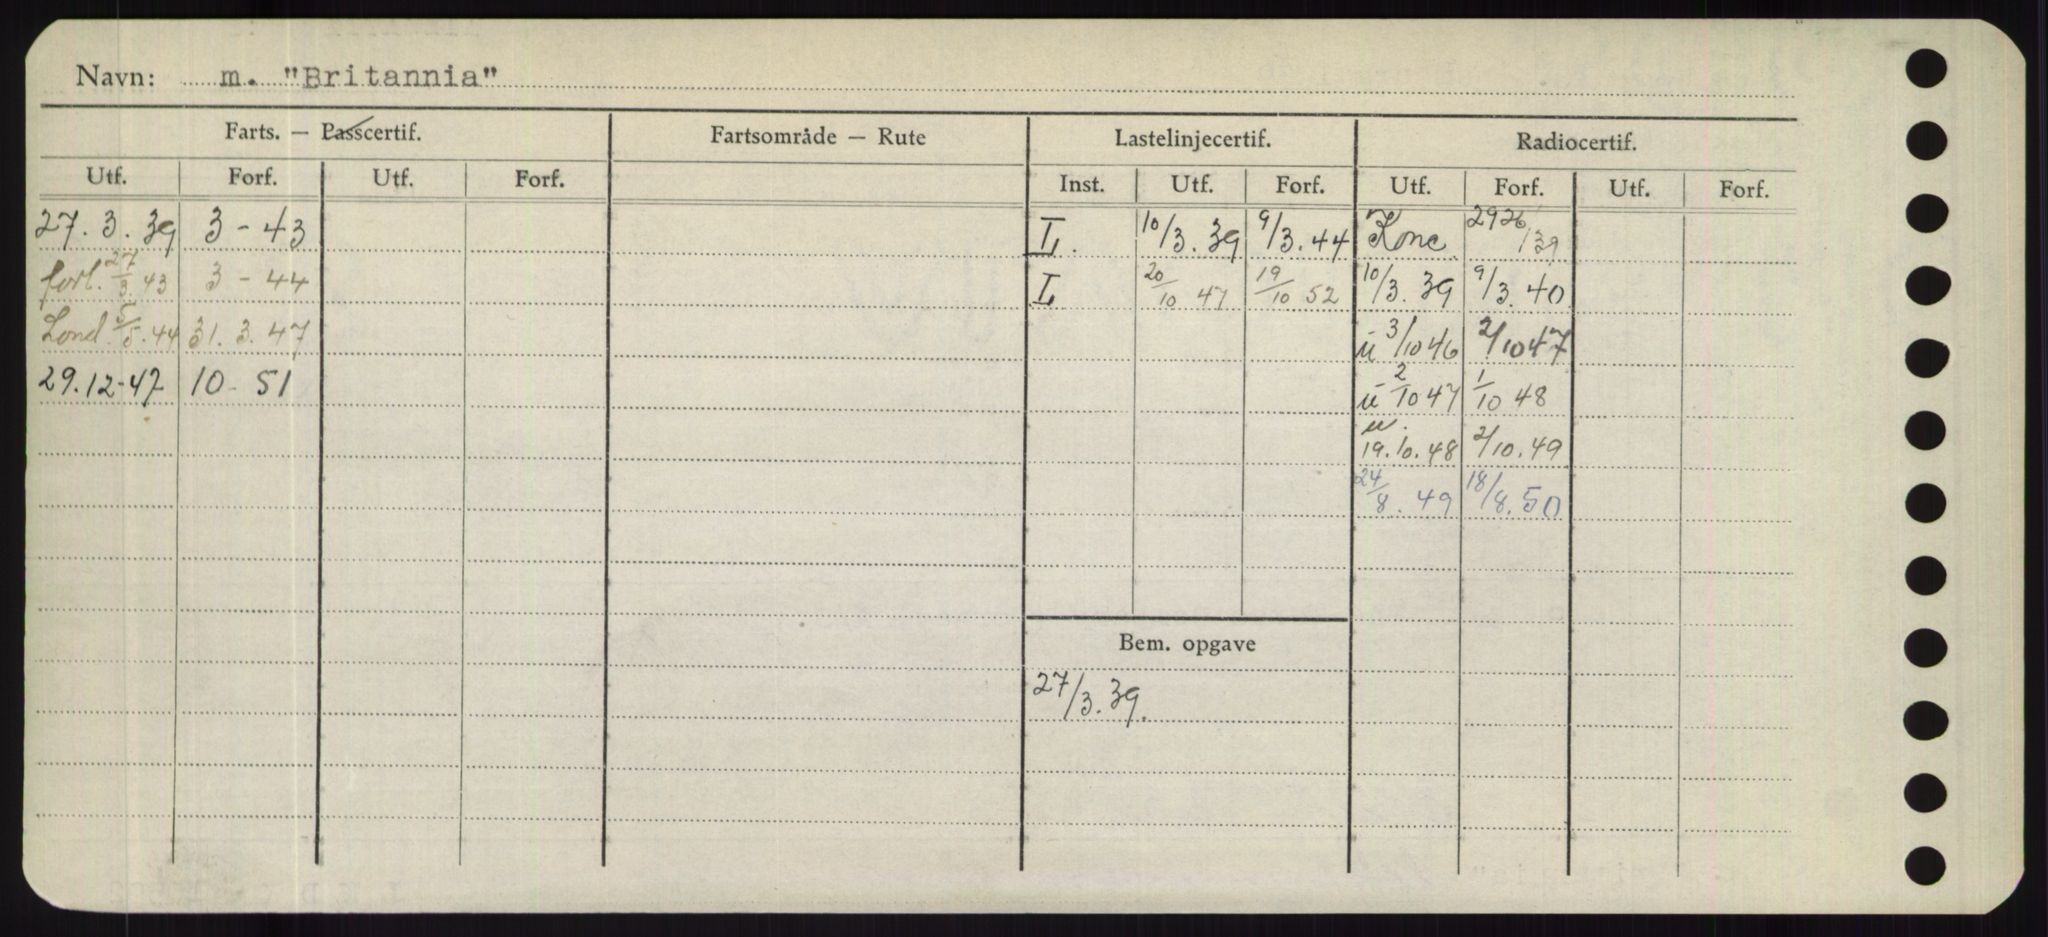 Navn: m. "Britannia"
Farts. — Passcertif. Fartsområde — Rute Lastelinjecertif. Radiocertif.
Utf. Forf. Utf. Forf. Inst. Utf. Forf. Utf. Forf. Utf. Forf.
27. 3. 39 3 - 43 L. 10/3. 39 9/3. 44 Konc. 2926/39
forl. 27/3. 43 3 - 44 L 20/10 47 19/10 52 10/3. 39 9/3. 40
Lond. 5/5. 44 31. 3. 47 ü 3/10 46 2/10 47
29.12-47 10 - 51 ü 2/10 47 1/10 48
u. 19.10.48 2/10.49
24/8. 49 18/8. 50
Bem. opgave
27/3. 39.